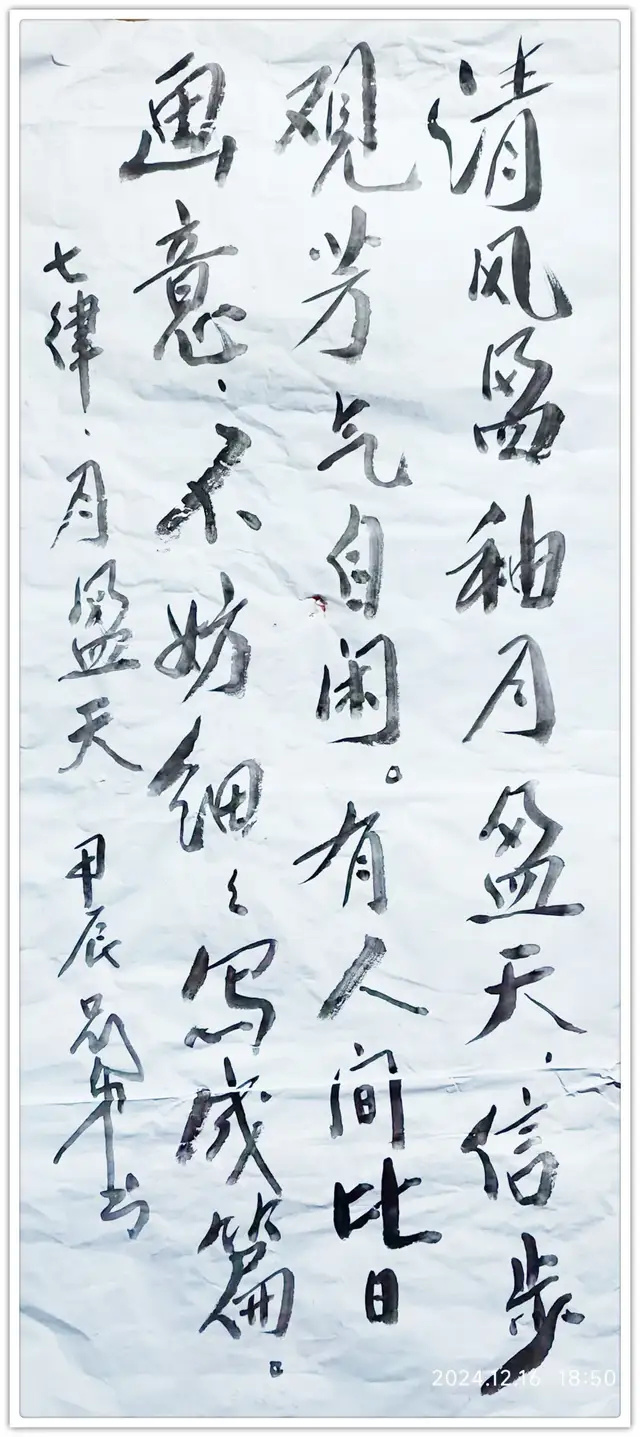 清风盈袖月盈天、信步
观芳气自闲。有人间皆
画意、不妨细々写成篇。
七律、月盈天 甲辰 书
2024.12.16 18:50